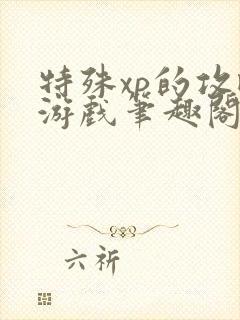 特殊xp的攻
游戏笔趣阁
六祈